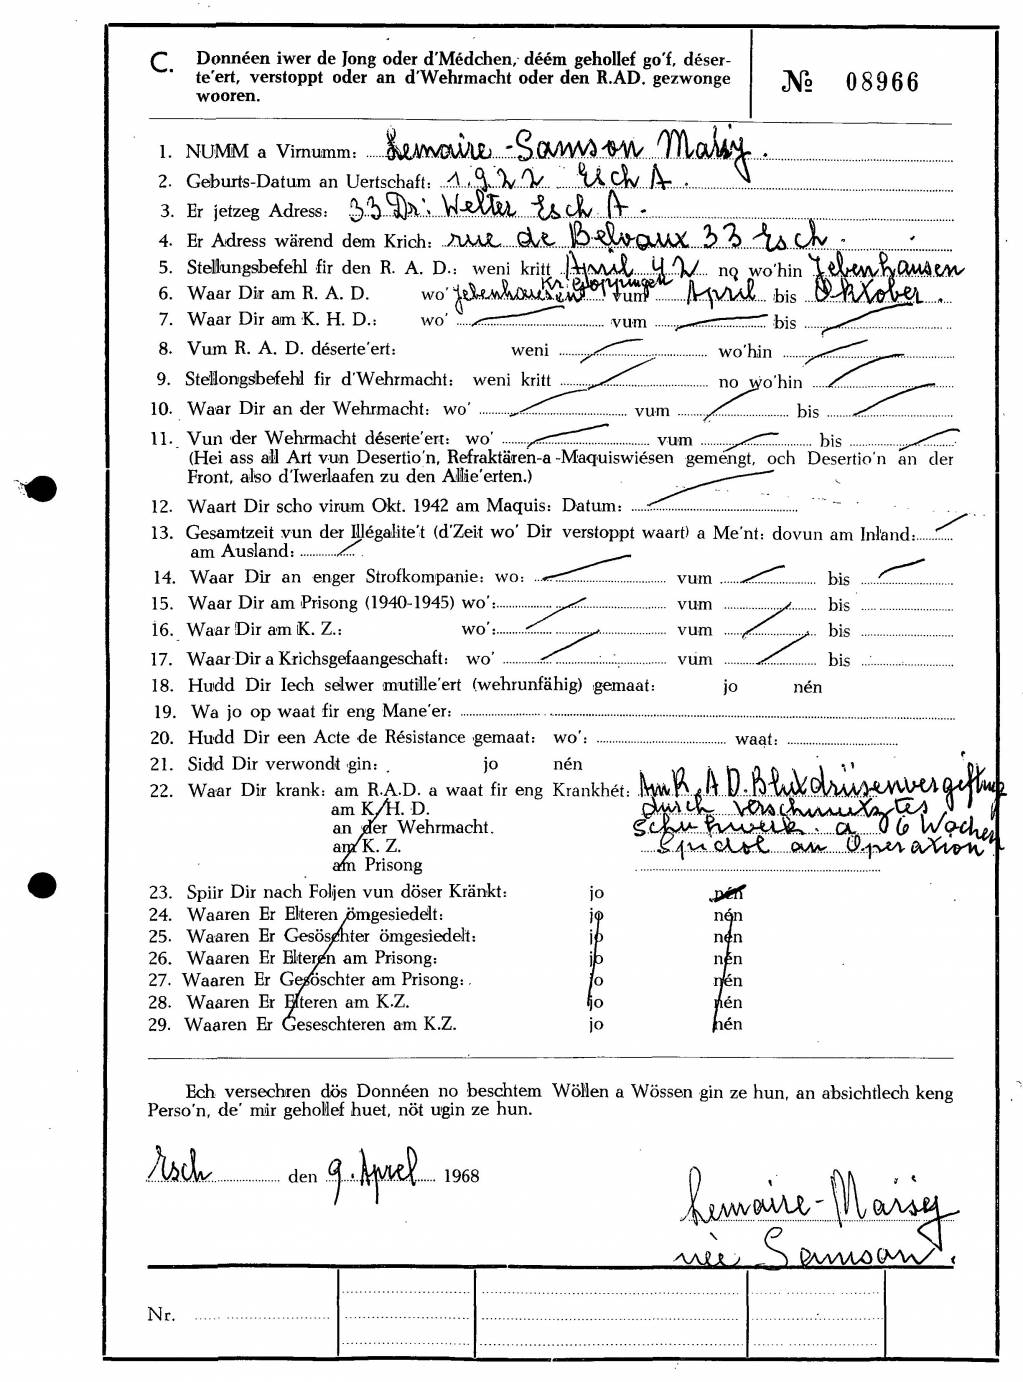 C. Donnéen iwer de Jong oder d'Médchen, déém gehollef go'f, déser-
te'ert, verstoppt oder an d'Wehrmacht oder den R.AD. gezwonge
wooren.
№ 08966
1. NUMM a Virnumm: Lemaire-Samson Maisy.
2. Geburts-Datum an Uertschaft: 1922 Esch A.
3. Er jetzeg Adress: 33 Dr: Welter Esch A.
4. Er Adress wärend dem Krich: rue de Belvaux 33 Esch.
5. Stellungsbefehl fir den R. A. D.: weni kritt April 42 no wo'hin Jebenhausen
6. Waar Dir am R. A. D. wo' Jebenhausen vum April bis Oktober.
7. Waar Dir am K. H. D.: wo' vum bis
8. Vum R. A. D. déserte'ert: weni wo'hin
9. Stellongsbefehl fir d'Wehrmacht: weni kritt no wo'hin
10. Waar Dir an der Wehrmacht: wo' vum bis
11. Vun der Wehrmacht déserte'ert: wo' vum bis
(Hei ass all Art vun Desertio'n, Refraktären-a-Maquiswiésen gemengt, och Desertio'n an der
Front, also d'Iwerlaafen zu den Allie'erten.)
12. Waart Dir scho virum Okt. 1942 am Maquis: Datum:
13. Gesamtzeit vun der Illégalite't (d'Zeit wo' Dir verstoppt waart) a Me'nt: dovun am Inland:
am Ausland:
14. Waar Dir an enger Strofkompanie: wo: vum bis
15. Waar Dir am Prisong (1940-1945) wo': vum bis
16. Waar Dir am K. Z.: wo': vum bis
17. Waar Dir a Krichsgefaangeschaft: wo' vum bis
18. Hudd Dir Iech selwer mutille'ert (wehrunfähig) gemaat: jo nén
19. Wa jo op waat fir eng Mane'er:
20. Hudd Dir een Acte de Résistance gemaat: wo': waat:
21. Sidd Dir verwondt gin: jo nén
22. Waar Dir krank: am R.A.D. a waat fir eng Krankhét: Am R.A D. Blutdrüsenvergiftung
am K. H. D. durch verschmutztes
an der Wehrmacht. Schuhwerk. a 6 Wochen
am K. Z. Spidol an Operation
am Prisong
23. Spiir Dir nach Foljen vun döser Kränkt: jo nén
24. Waaren Er Elteren ömgesiedelt: jo nén
25. Waaren Er Gesöschter ömgesiedelt: jo nén
26. Waaren Er Elteren am Prisong: jo nén
27. Waaren Er Gesöschter am Prisong: jo nén
28. Waaren Er Elteren am K.Z. jo nén
29. Waaren Er Geseschteren am K.Z. jo nén
Ech versechren dös Donnéen no beschtem Wöllen a Wössen gin ze hun, an absichtlech keng
Perso'n, de' mir gehollef huet, nöt ugin ze hun.
Esch den 9. Aprel 1968
Lemaire-Maisy
née Samson.
Nr.